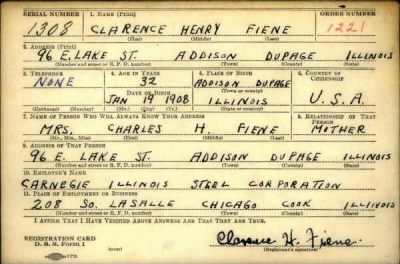 SERIAL NUMBER 1. NAME (Print) ORDER NUMBER
1308 CLARENCE HENRY FIENE 1221
(First) (Middle) (Last)
2. ADDRESS (Print)
96 E. LAKE ST. ADDISON DUPAGE ILLINOIS
(Number and street or R. F. D. number) (Town) (County) (State)
3. TELEPHONE 4. AGE IN YEARS 5. PLACE OF BIRTH 6. COUNTRY OF CITIZENSHIP
NONE 32 ADDISON DUPAGE
DATE OF BIRTH (Town or county)
JAN 19 1908 ILLINOIS U.S.A.
(Exchange) (Number) (Mo.) (Day) (Yr.) (State or country)
7. NAME OF PERSON WHO WILL ALWAYS KNOW YOUR ADDRESS 8. RELATIONSHIP OF THAT PERSON
MRS. CHARLES H. FIENE MOTHER
(Mr., Mrs., Miss) (First) (Middle) (Last)
9. ADDRESS OF THAT PERSON
96 E. LAKE ST. ADDISON DUPAGE ILLINOIS
(Number and street or R. F. D. number) (Town) (County) (State)
10. EMPLOYER'S NAME
CARNEGIE ILLINOIS STEEL CORPORATION
11. PLACE OF EMPLOYMENT OR BUSINESS
208 SO. LASALLE CHICAGO COOK ILLINOIS
(Number and street or R. F. D. number) (Town) (County) (State)
I AFFIRM THAT I HAVE VERIFIED ABOVE ANSWERS AND THAT THEY ARE TRUE.
REGISTRATION CARD
D. S. S. Form 1
Clarence H. Fiene